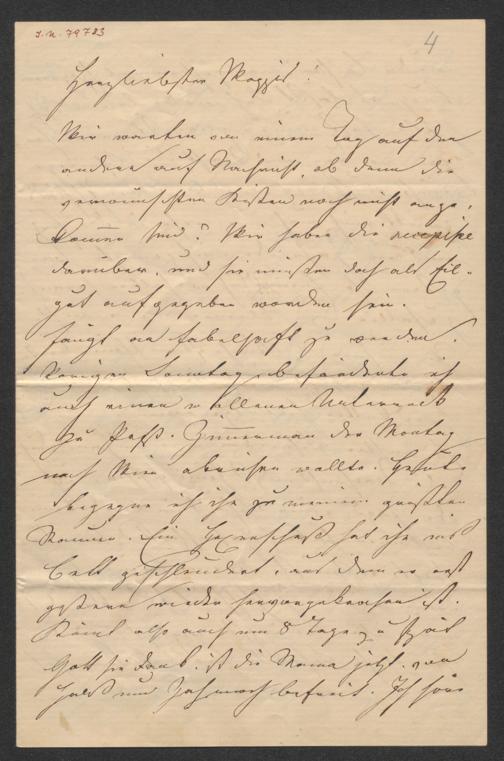 I.N. 79783
4
Herzliebster Mazzis!
Wir warten von einem Tag auf den
andern auf Nachricht, ob denn die
verwünschten Kisten noch nicht ange-
kommen sind? Wir haben die recepisse
darüber, und sie müssten doch als Eil-
gut aufgegeben worden sein.
fängt an fabelhaft zu werden.
Vorigen Sonntag beförderte ich
auch einen wollenen Unterrock
zu Prof. Zimmerman der Montag
nach Wien abreisen wollte. Heute
begegne ich ihm zu meinem größten
Staunen. Ein Hexenschuß hat ihn ins
Bett geschleudert, aus dem er erst
gestern wieder hervorgekrochen ist.
Kömt also auch um 8 Tage zu spät
Gott sei Dank, ist die Mama jetzt von
Hals und Zahnweh befreit. Ich